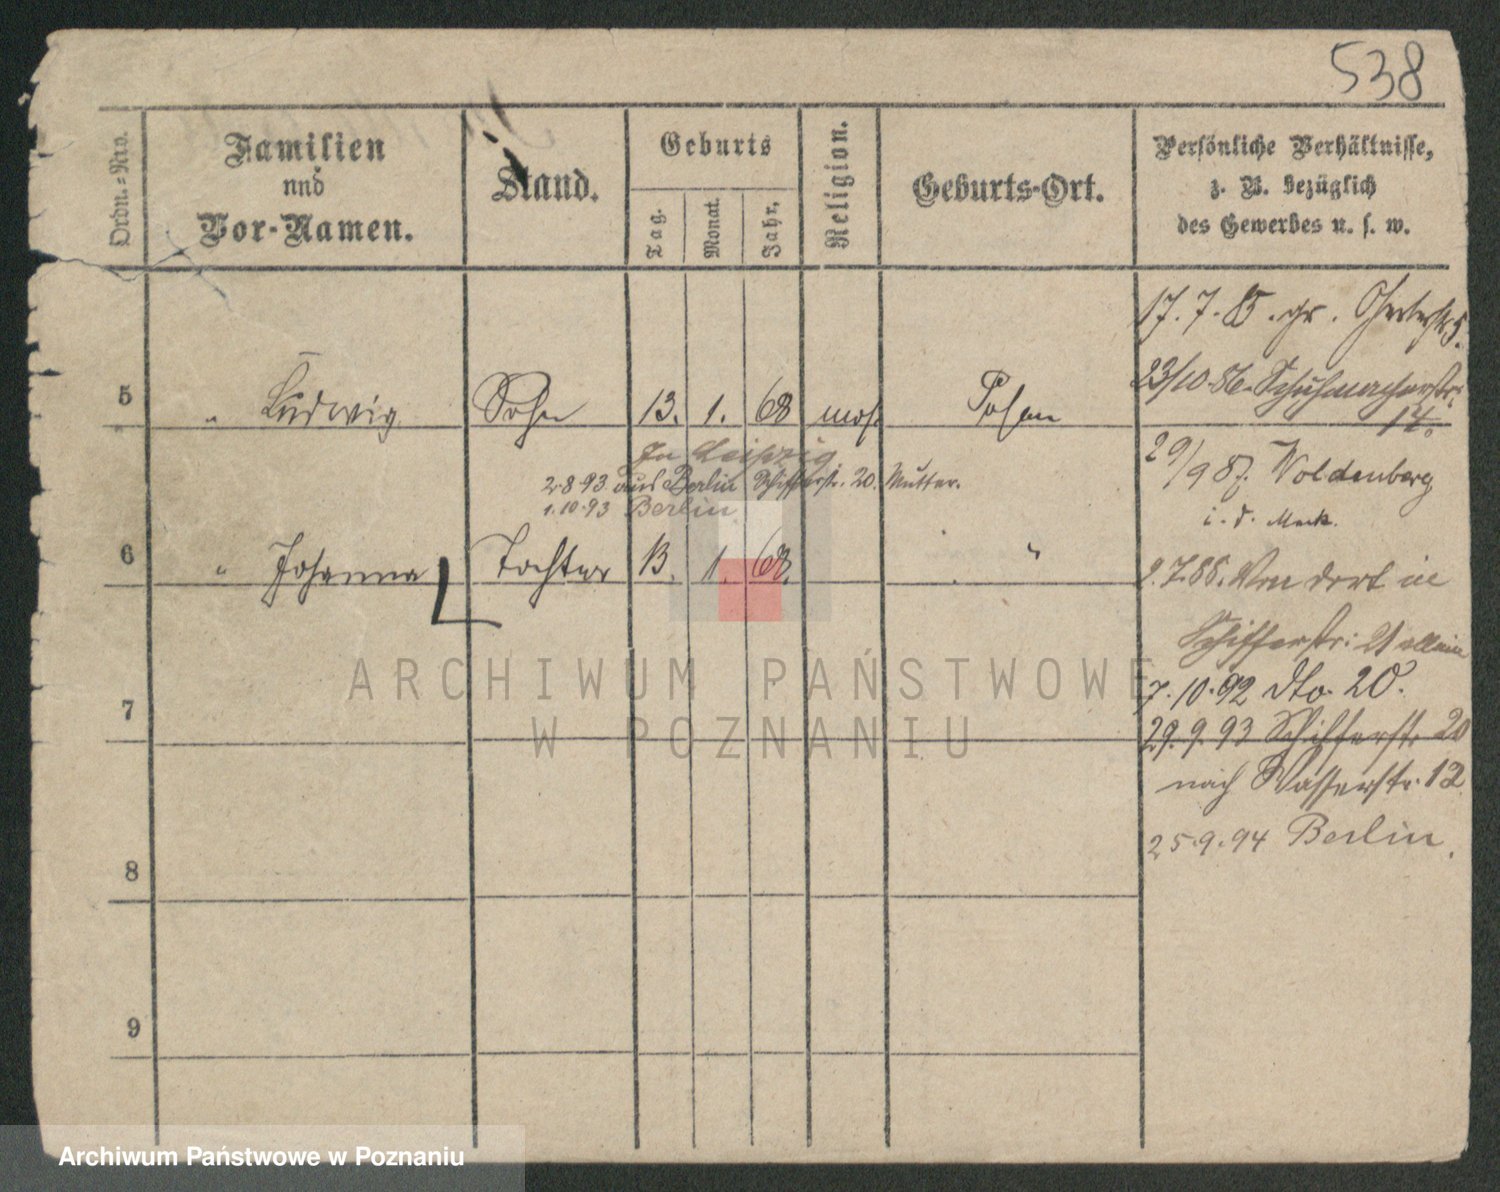 538
Ordn.-Nro.
Familien
und
Vor-Namen.
Stand.
Geburts
Tag.
Monat.
Jahr.
Religion.
Geburts-Ort.
Persönliche Verhältnisse,
z. B. bezüglich
des Gewerbes u. s. w.
17. 7. 85. gr. Gerberstr. 5.
23/10. 86. Schuhmacherstr.
14.
5 " Ludwig Sohn 13. 1. 68 mos. Posen
In Leipzig
2.8.93 aus Berlin Schifferstr. 20. Mutter.
1.10.93 Berlin
29/9 87. Woldenberg
i. d. Mark.
6 " Johanna Tochter 13. 1. 68. "
2.7.88. Von dort in
Schifferstr: 21 allein
7.10.92 dto. 20.
7
29.9.93 Schifferstr. 20
nach Wasserstr. 12
25.9.94 Berlin.
8
9
ARCHIWUM PAŃSTWOWE
W POZNANIU
Archiwum Państwowe w Poznaniu